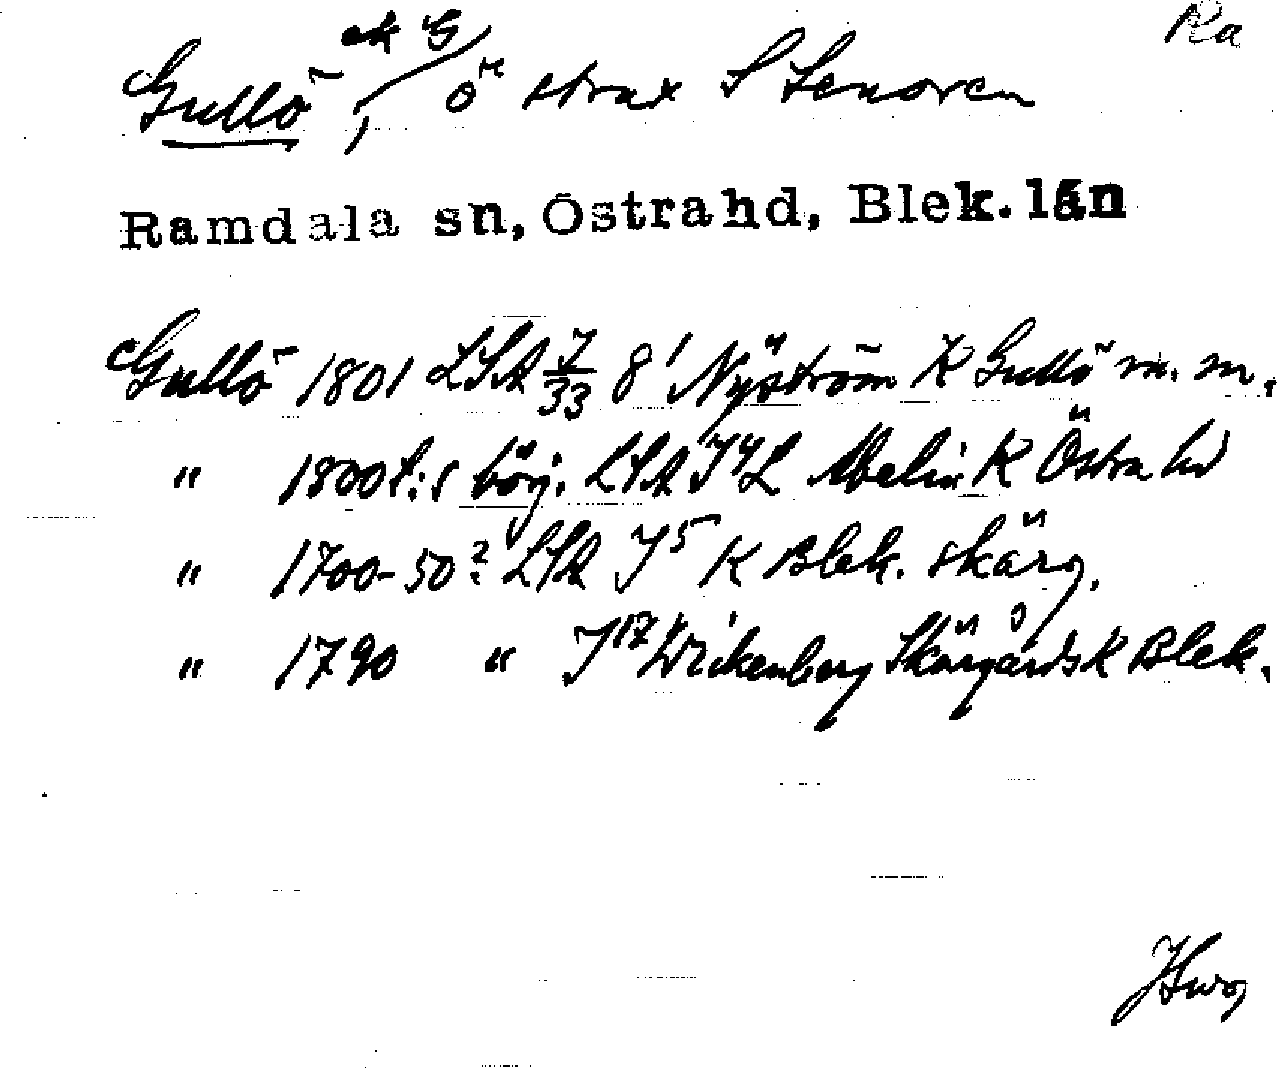 Ra
ek G
Gullö, ö strax S Senoren
Ramdala sn, Östrahd, Blek. län
Gullö 1801 LSA 7/33 8' Nyström K Gullö m. m.
" 1800t:s börj. LSA J4L Melin K Östra hd
" 1700-50? LSA J5 K Blek. skärg.
" 1790 " J17 Wickenberg Skärgårds K Blek.